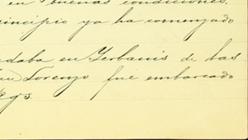 en buenas condiciones.
principio ya ha comenzado
daba en de las
Lorenzo fue embarcado